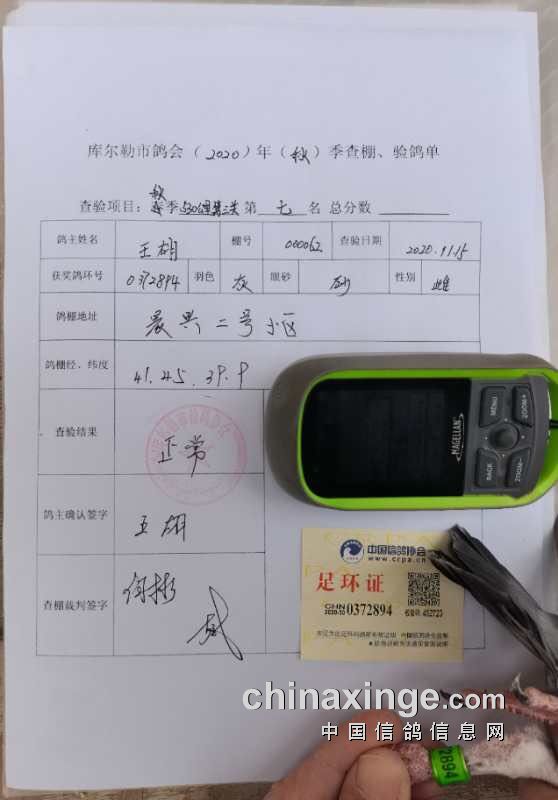 库尔勒市鸽会（2020）年（秋）季查棚、验鸽单
秋
查验项目：季530公里第三关 第 七 名 总分数
鸽主姓名 王胡 棚号 000062 查验日期 2020.11.15
获奖鸽环号 0372894 羽色 灰 眼砂 砂 性别 雌
鸽棚地址 晨兴二号小区
鸽棚经、纬度 41.45.39.9
查验结果 正常
鸽主确认签字 王胡
查棚裁判签字 何彬
MENU
ZOOM+
BACK
ZOOM-
MAGELLAN
中国信鸽协会
www.crpa.cn
足环证
CHN
2020-30 0372894
452723
2894
chinaxinge.com
中国信鸽信息网